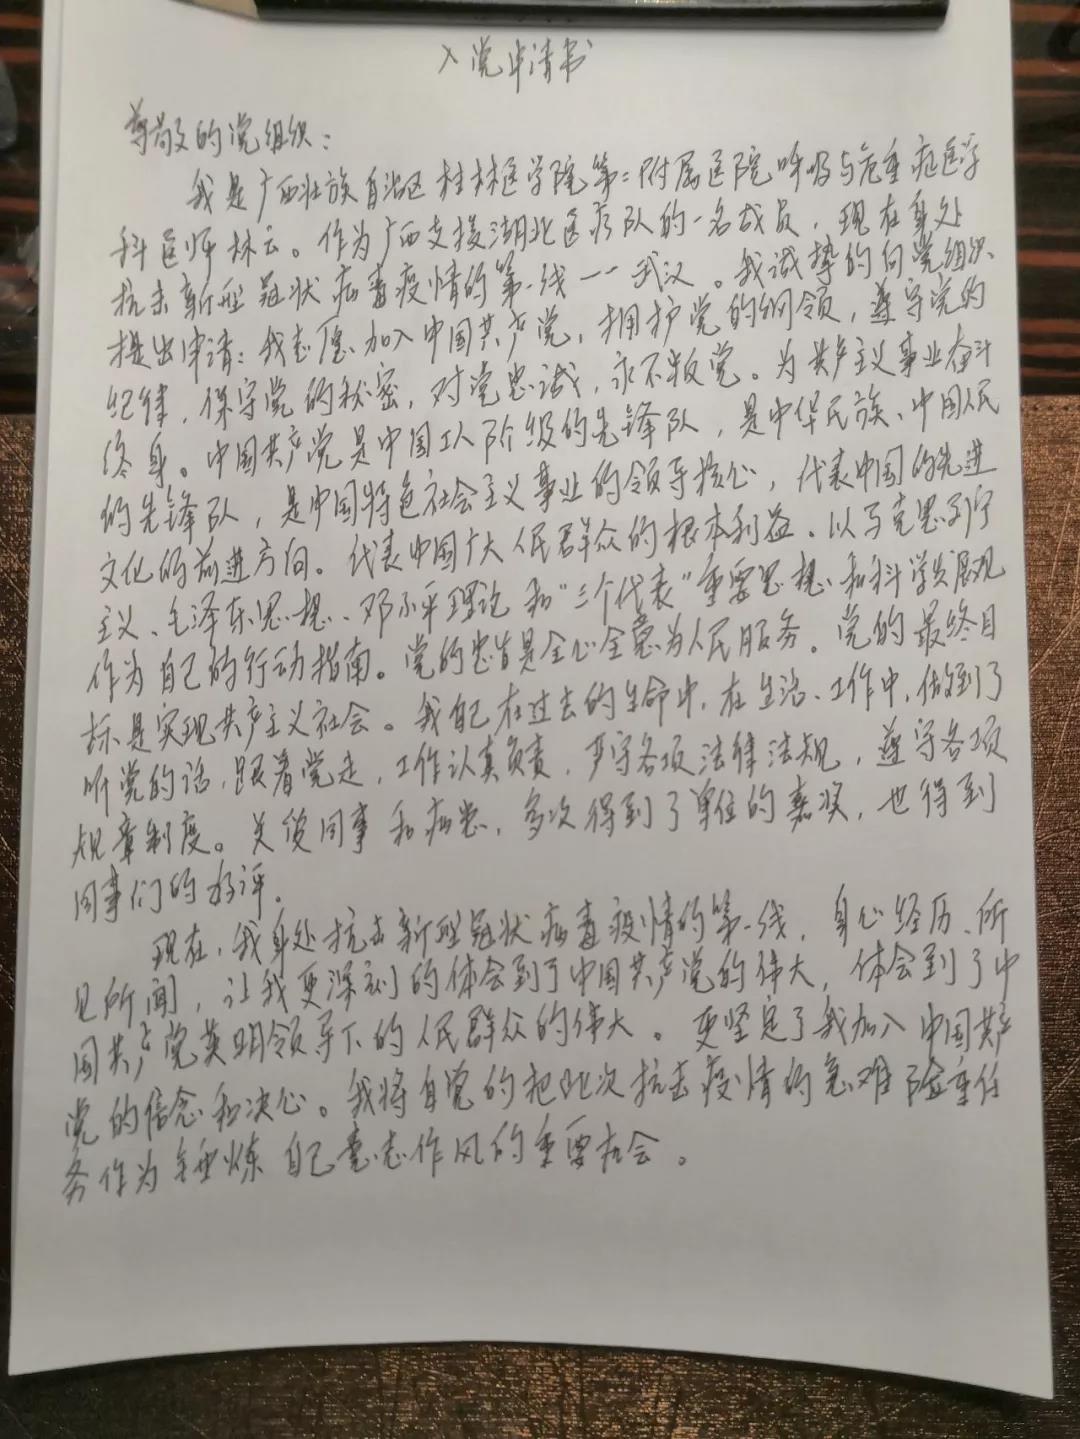 入党申请书
尊敬的党组织：
我是广西壮族自治区桂林医学院第二附属医院呼吸与危重症医学
科医师林云。作为广西支援湖北医疗队的一名成员，现在身处
抗击新型冠状病毒疫情的第一线——武汉。我诚挚的向党组织
提出申请：我志愿加入中国共产党，拥护党的纲领，遵守党的
纪律，保守党的秘密，对党忠诚，永不叛党。为共产主义事业奋斗
终身。中国共产党是中国工人阶级的先锋队，是中华民族、中国人民
的先锋队，是中国特色社会主义事业的领导核心，代表中国的先进
文化的前进方向。代表中国广大人民群众的根本利益。以马克思列宁
主义、毛泽东思想、邓小平理论和“三个代表”重要思想和科学发展观
作为自己的行动指南。党的宗旨是全心全意为人民服务。党的最终目
标是实现共产主义社会。我自己在过去的生命中，在生活、工作中，做到了
听党的话，跟着党走，工作认真负责，严守各项法律法规，遵守各项
规章制度。关爱同事和病患，多次得到了单位的嘉奖，也得到
同事们的好评。
现在，我身处抗击新型冠状病毒疫情的第一线，身心经历、所
见所闻，让我更深刻的体会到了中国共产党的伟大，体会到了中
国共产党英明领导下的人民群众的伟大。更坚定了我加入中国共产
党的信念和决心。我将自觉的把此次抗击疫情的急难险重任
务作为锤炼自己意志作风的重要机会。